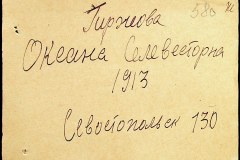 580
Гиржова
Оксана Селевесторна
1913
Севостопольск 130